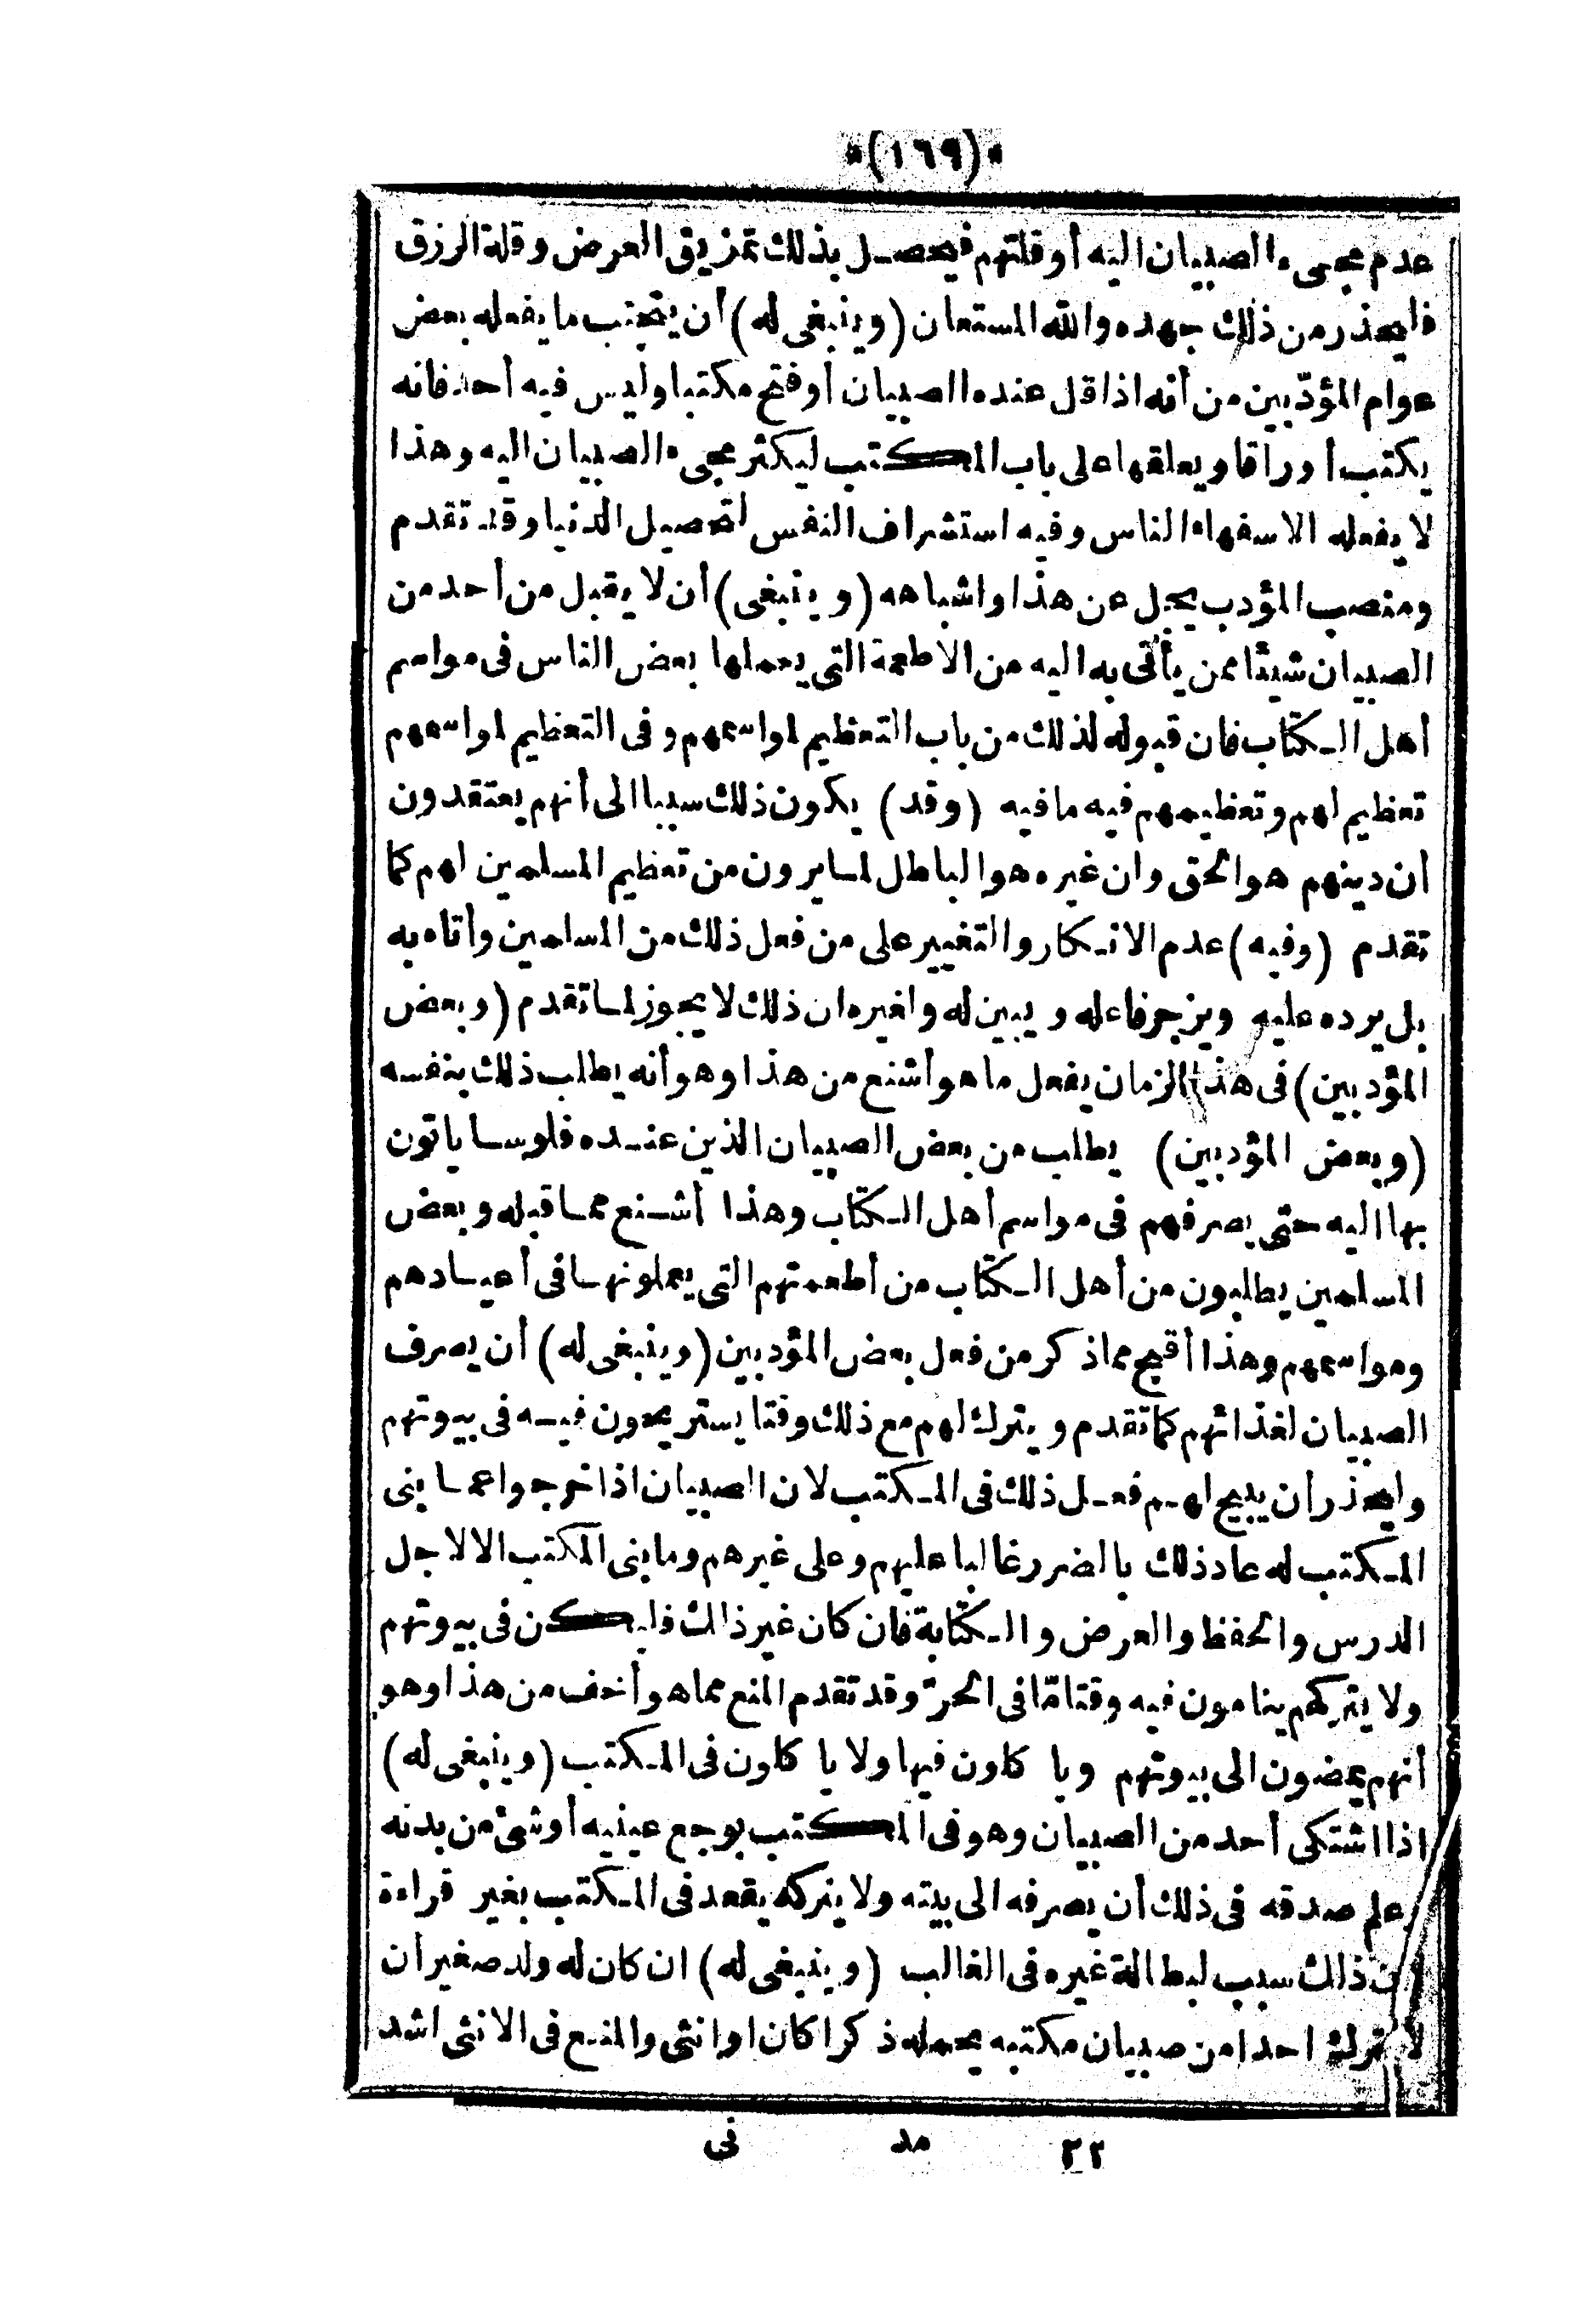 *(١٦٩)*
عدم مجىء الصبيان اليه أو قلتهم فيحصل بذلك تمزيق العرض وقلة الرزق
فليحذر من ذلك جهده والله المستعان (وينبغى له) أن يتجنب ما يفعله بعض
عوام المؤدّبين من أنه اذا قل عنده الصبيان أو فتح مكتبا وليس فيه أحد فانه
يكتب أوراقا ويعلقها على باب المكتب ليكثر مجىء الصبيان اليه وهذا
لا يفعله الا سفهاء الناس وفيه استشراف النفس لتحصيل الدنيا وقد تقدم
ومنصب المؤدب يجل عن هذا واشباهه (وينبغى) أن لا يقبل من أحد من
الصبيان شيئا ممن يأتى به اليه من الاطعمة التى يعملها بعض الناس فى مواسم
أهل الكتاب فان قبوله لذلك من باب التعظيم لمواسمهم وفى التعظيم لمواسمهم
تعظيم لهم وتعظيمهم فيه ما فيه (وقد) يكون ذلك سببا الى أنهم يعتقدون
أن دينهم هو الحق وان غيره هو الباطل لما يرون من تعظيم المسلمين لهم كما
تقدم (وفيه) عدم الانكار والتغيير على من فعل ذلك من المسلمين وأتاه به
بل يرده عليه ويزجر فاعله ويبين له ولغيره ان ذلك لا يجوز لما تقدم (وبعض
المؤدبين) فى هذا الزمان يفعل ما هو أشنع من هذا وهو أنه يطلب ذلك بنفسه
(وبعض المؤدبين) يطلب من بعض الصبيان الذين عنده فلوسا ياتون
بها اليه حتى يصرفهم فى مواسم أهل الكتاب وهذا أشنع مما قبله وبعض
المسلمين يطلبون من أهل الكتاب من أطعمتهم التى يعملونها فى أعيادهم
ومواسمهم وهذا أقبح مما ذكر من فعل بعض المؤدبين (وينبغى له) أن يصرف
الصبيان لغذائهم كما تقدم ويترك لهم مع ذلك وقتا يستريحون فيه فى بيوتهم
وليحذر أن يبيح لهم فعل ذلك فى المكتب لان الصبيان اذا خرجوا عما بنى
المكتب له عاد ذلك بالضرر غالبا عليهم وعلى غيرهم وما بنى المكتب الا لاجل
الدرس والحفظ والعرض والكتابة فان كان غير ذلك فليكن فى بيوتهم
ولا يتركهم ينامون فيه وقتامّا فى الحرّ وقد تقدم المنع مما هو أخف من هذا وهو
أنهم يمضون الى بيوتهم وياكلون فيها ولا ياكلون فى المكتب (وينبغى له)
اذا اشتكى أحد من الصبيان وهو فى المكتب بوجع عينيه أو شئ من بدنه
وعلم صدقه فى ذلك أن يصرفه الى بيته ولا يتركه يقعد فى المكتب بغير قراءة
لان ذلك سبب لبطالة غيره فى الغالب (وينبغى له) ان كان له ولد صغير أن
لا يترك احدا من صبيان مكتبه يحمله ذكرا كان اوانثى والمنع فى الانثى اشد
٢٢ مد نى